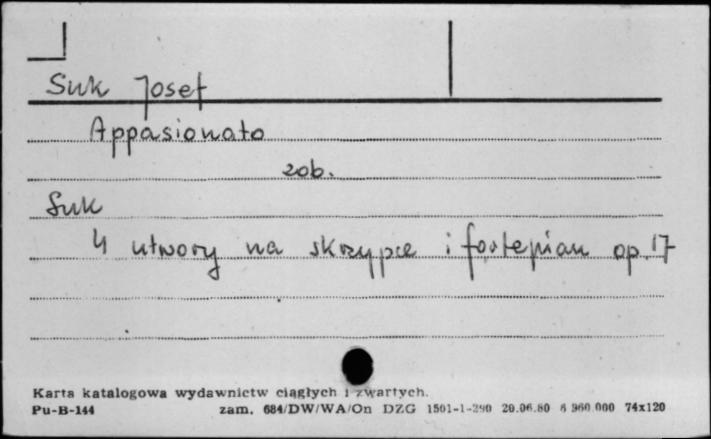 Suk Josef
Appasionato
zob.
Suk
4 utwory na skrzypce i fortepian op. 17
Karta katalogowa wydawnictw ciągłych i zwartych.
Pu-B-144 zam. 684/DW/WA/On DZG 1501-1-290 20.06.80 6 960 000 74x120